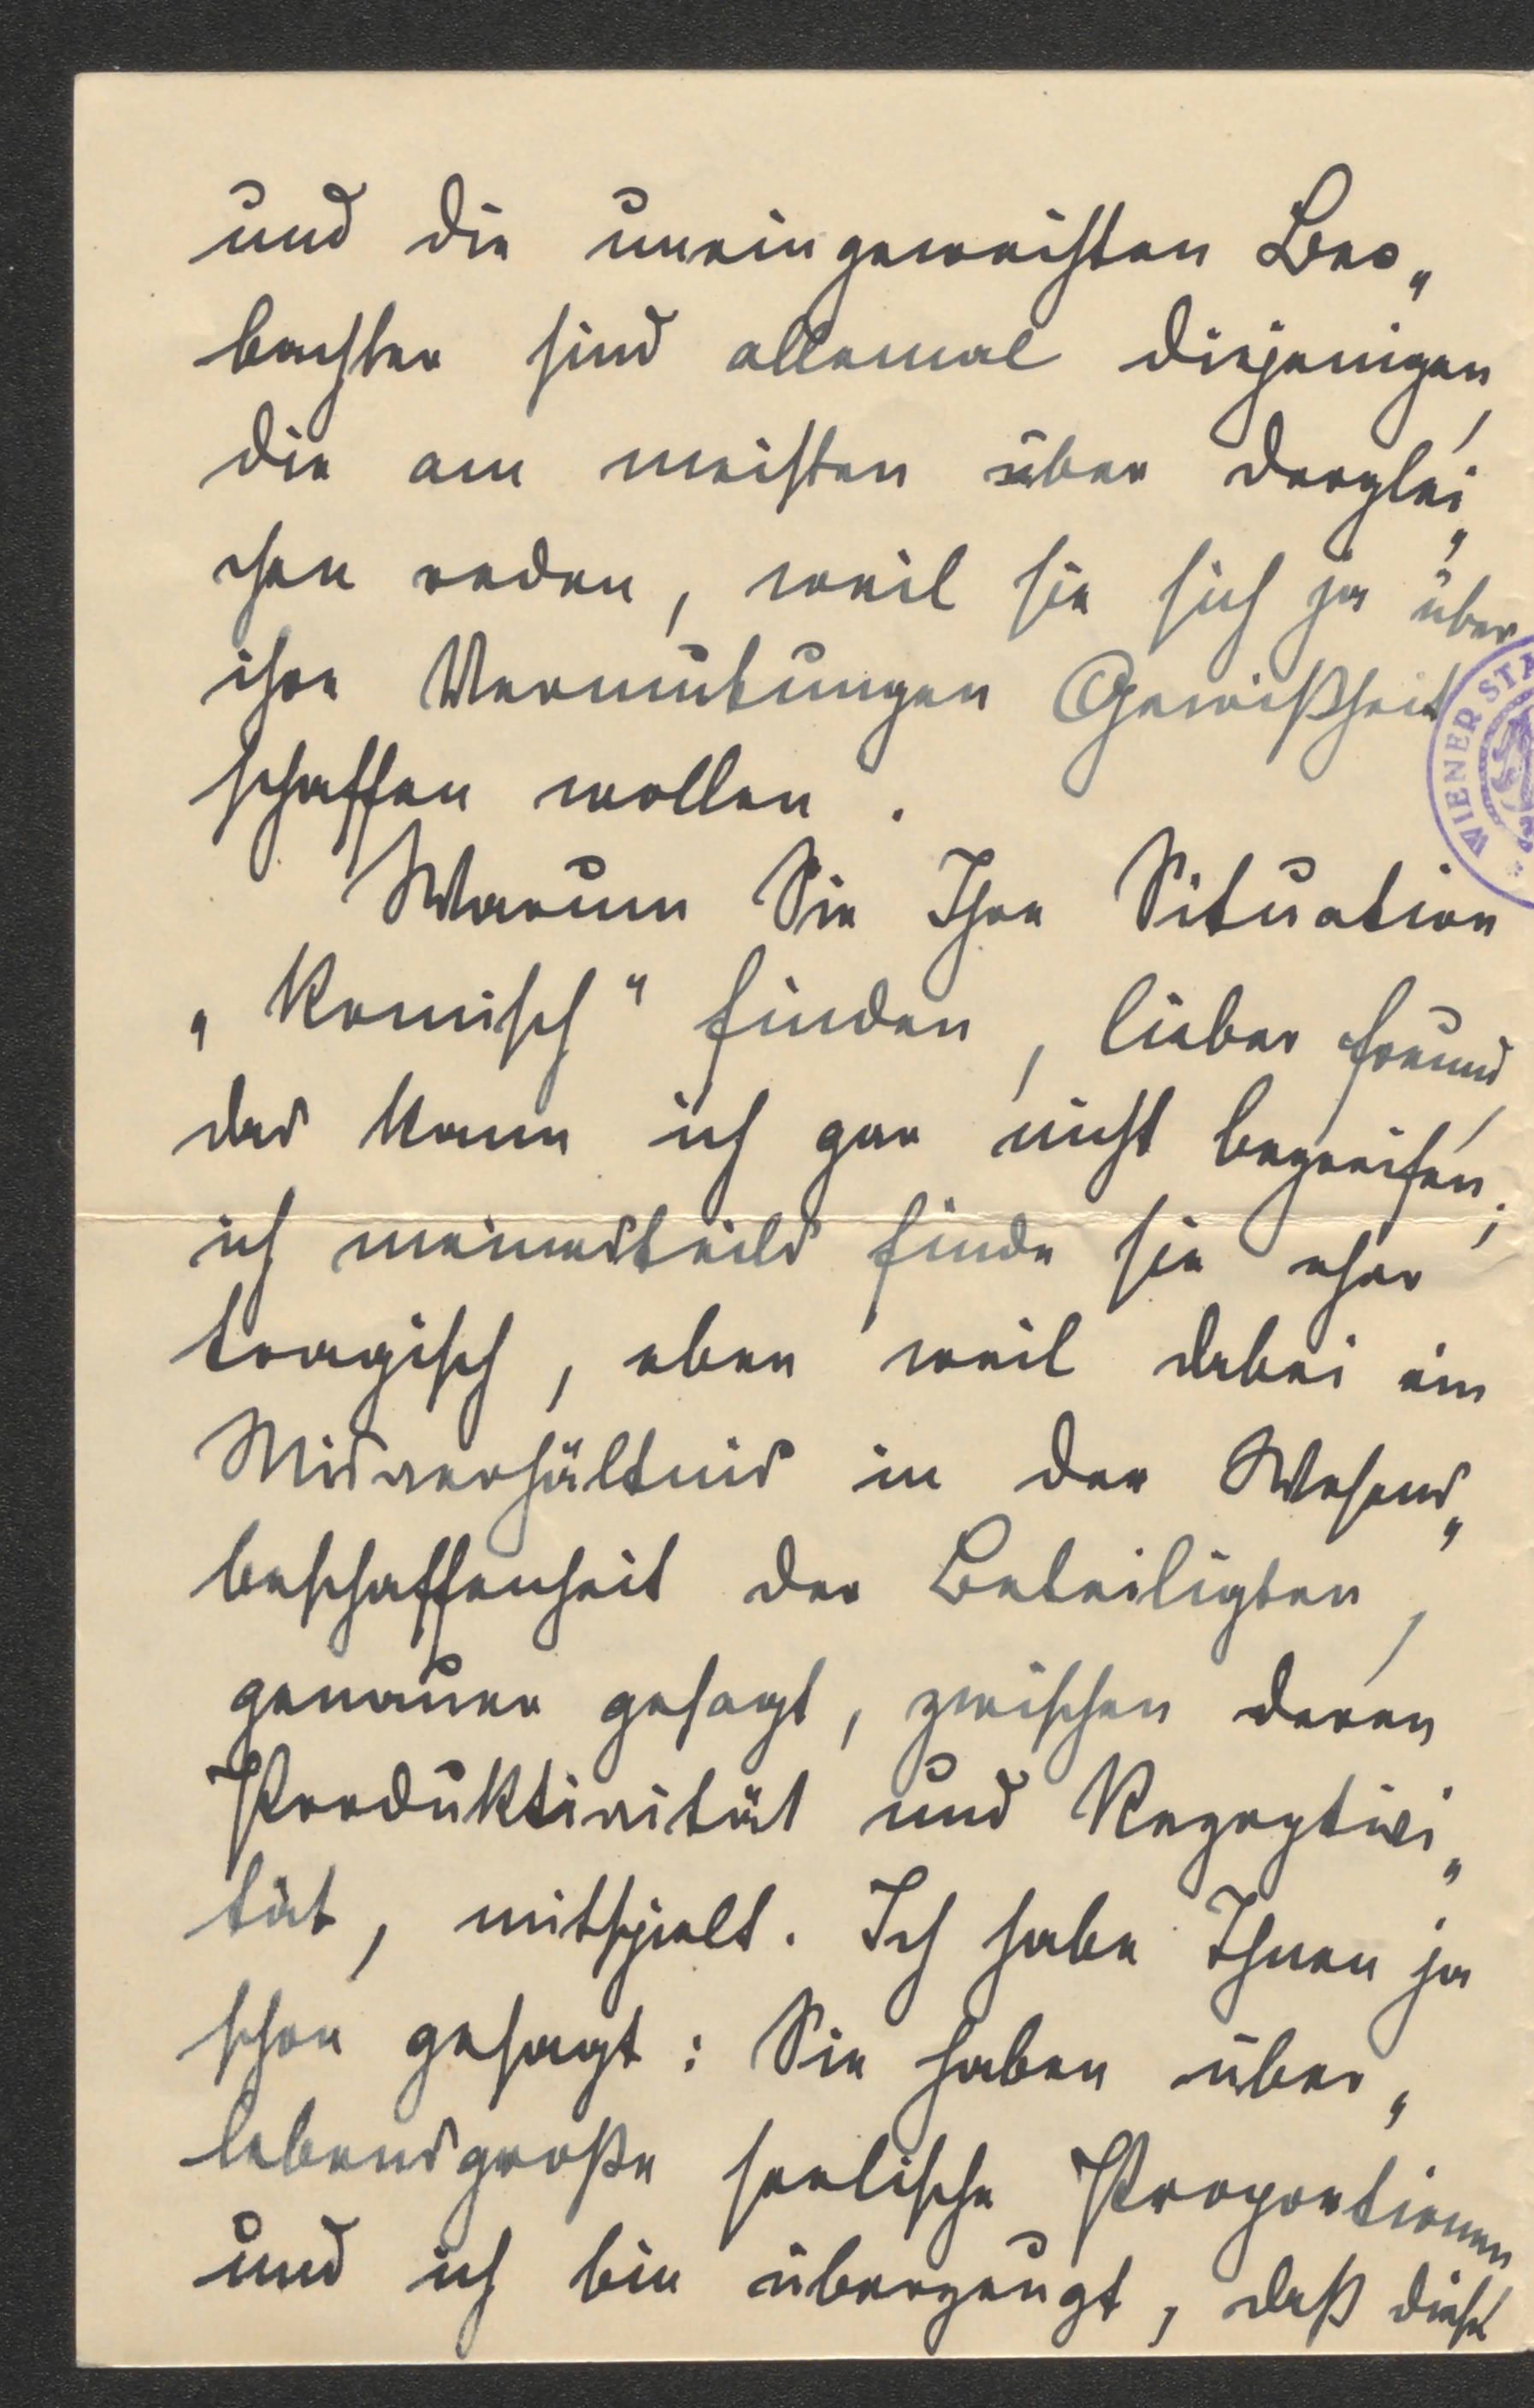 und die uneingeweihten Beo„
bachter sind allemal diejenigen,
die am meisten über derglei„
chen reden, weil sie sich ja über
ihre Vermutungen Gewißheit
schaffen wollen.
Warum Sie Ihre Situation
„komisch“ finden, lieber Freund,
das kann ich gar nicht begreifen;
ich meinesteils finde sie eher
tragisch, eben weil dabei ein
Misverhältnis in der Wesens„
beschaffenheit der Beteiligten,
genauer gesagt, zwischen deren
Produktivität und Rezeptivi„
tät, mitspielt. Ich habe Ihnen ja
schon gesagt: Sie haben über„
lebensgroße seelische Proportionen
und ich bin überzeugt, daß dieses
WIENER STA